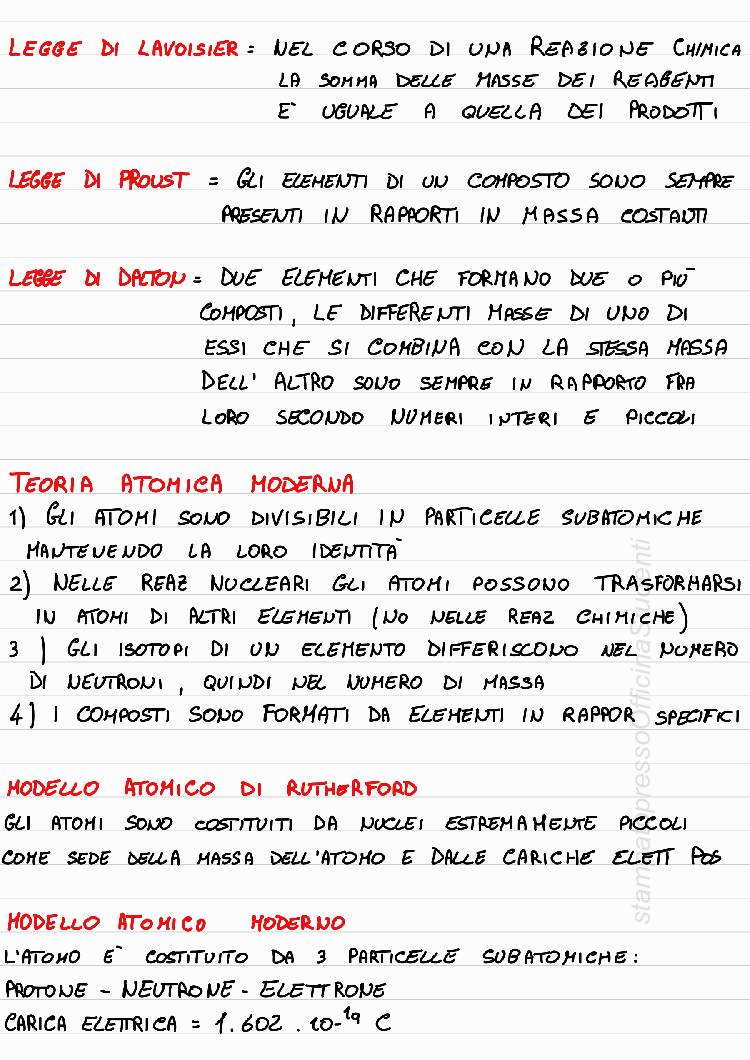 LEGGE DI LAVOISIER = NEL CORSO DI UNA REAZIONE CHIMICA
LA SOMMA DELLE MASSE DEI REAGENTI
E' UGUALE A QUELLA DEI PRODOTTI
LEGGE DI PROUST = GLI ELEMENTI DI UN COMPOSTO SONO SEMPRE
PRESENTI IN RAPPORTI IN MASSA COSTANTI
LEGGE DI DALTON = DUE ELEMENTI CHE FORMANO DUE O PIÙ
COMPOSTI, LE DIFFERENTI MASSE DI UNO DI
ESSI CHE SI COMBINA CON LA STESSA MASSA
DELL' ALTRO SONO SEMPRE IN RAPPORTO FRA
LORO SECONDO NUMERI INTERI E PICCOLI
TEORIA ATOMICA MODERNA
1) GLI ATOMI SONO DIVISIBILI IN PARTICELLE SUBATOMICHE
MANTENENDO LA LORO IDENTITÀ
2) NELLE REAZ NUCLEARI GLI ATOMI POSSONO TRASFORMARSI
IN ATOMI DI ALTRI ELEMENTI (NO NELLE REAZ CHIMICHE)
3 ) GLI ISOTOPI DI UN ELEMENTO DIFFERISCONO NEL NUMERO
DI NEUTRONI, QUINDI NEL NUMERO DI MASSA
4) I COMPOSTI SONO FORMATI DA ELEMENTI IN RAPPOR SPECIFICI
MODELLO ATOMICO DI RUTHERFORD
GLI ATOMI SONO COSTITUITI DA NUCLEI ESTREMAMENTE PICCOLI
COME SEDE DELLA MASSA DELL'ATOMO E DALLE CARICHE ELETT POS
MODELLO ATOMICO MODERNO
L'ATOMO E' COSTITUITO DA 3 PARTICELLE SUBATOMICHE:
PROTONE - NEUTRONE - ELETTRONE
CARICA ELETTRICA = 1.602 . 10⁻¹⁹ C